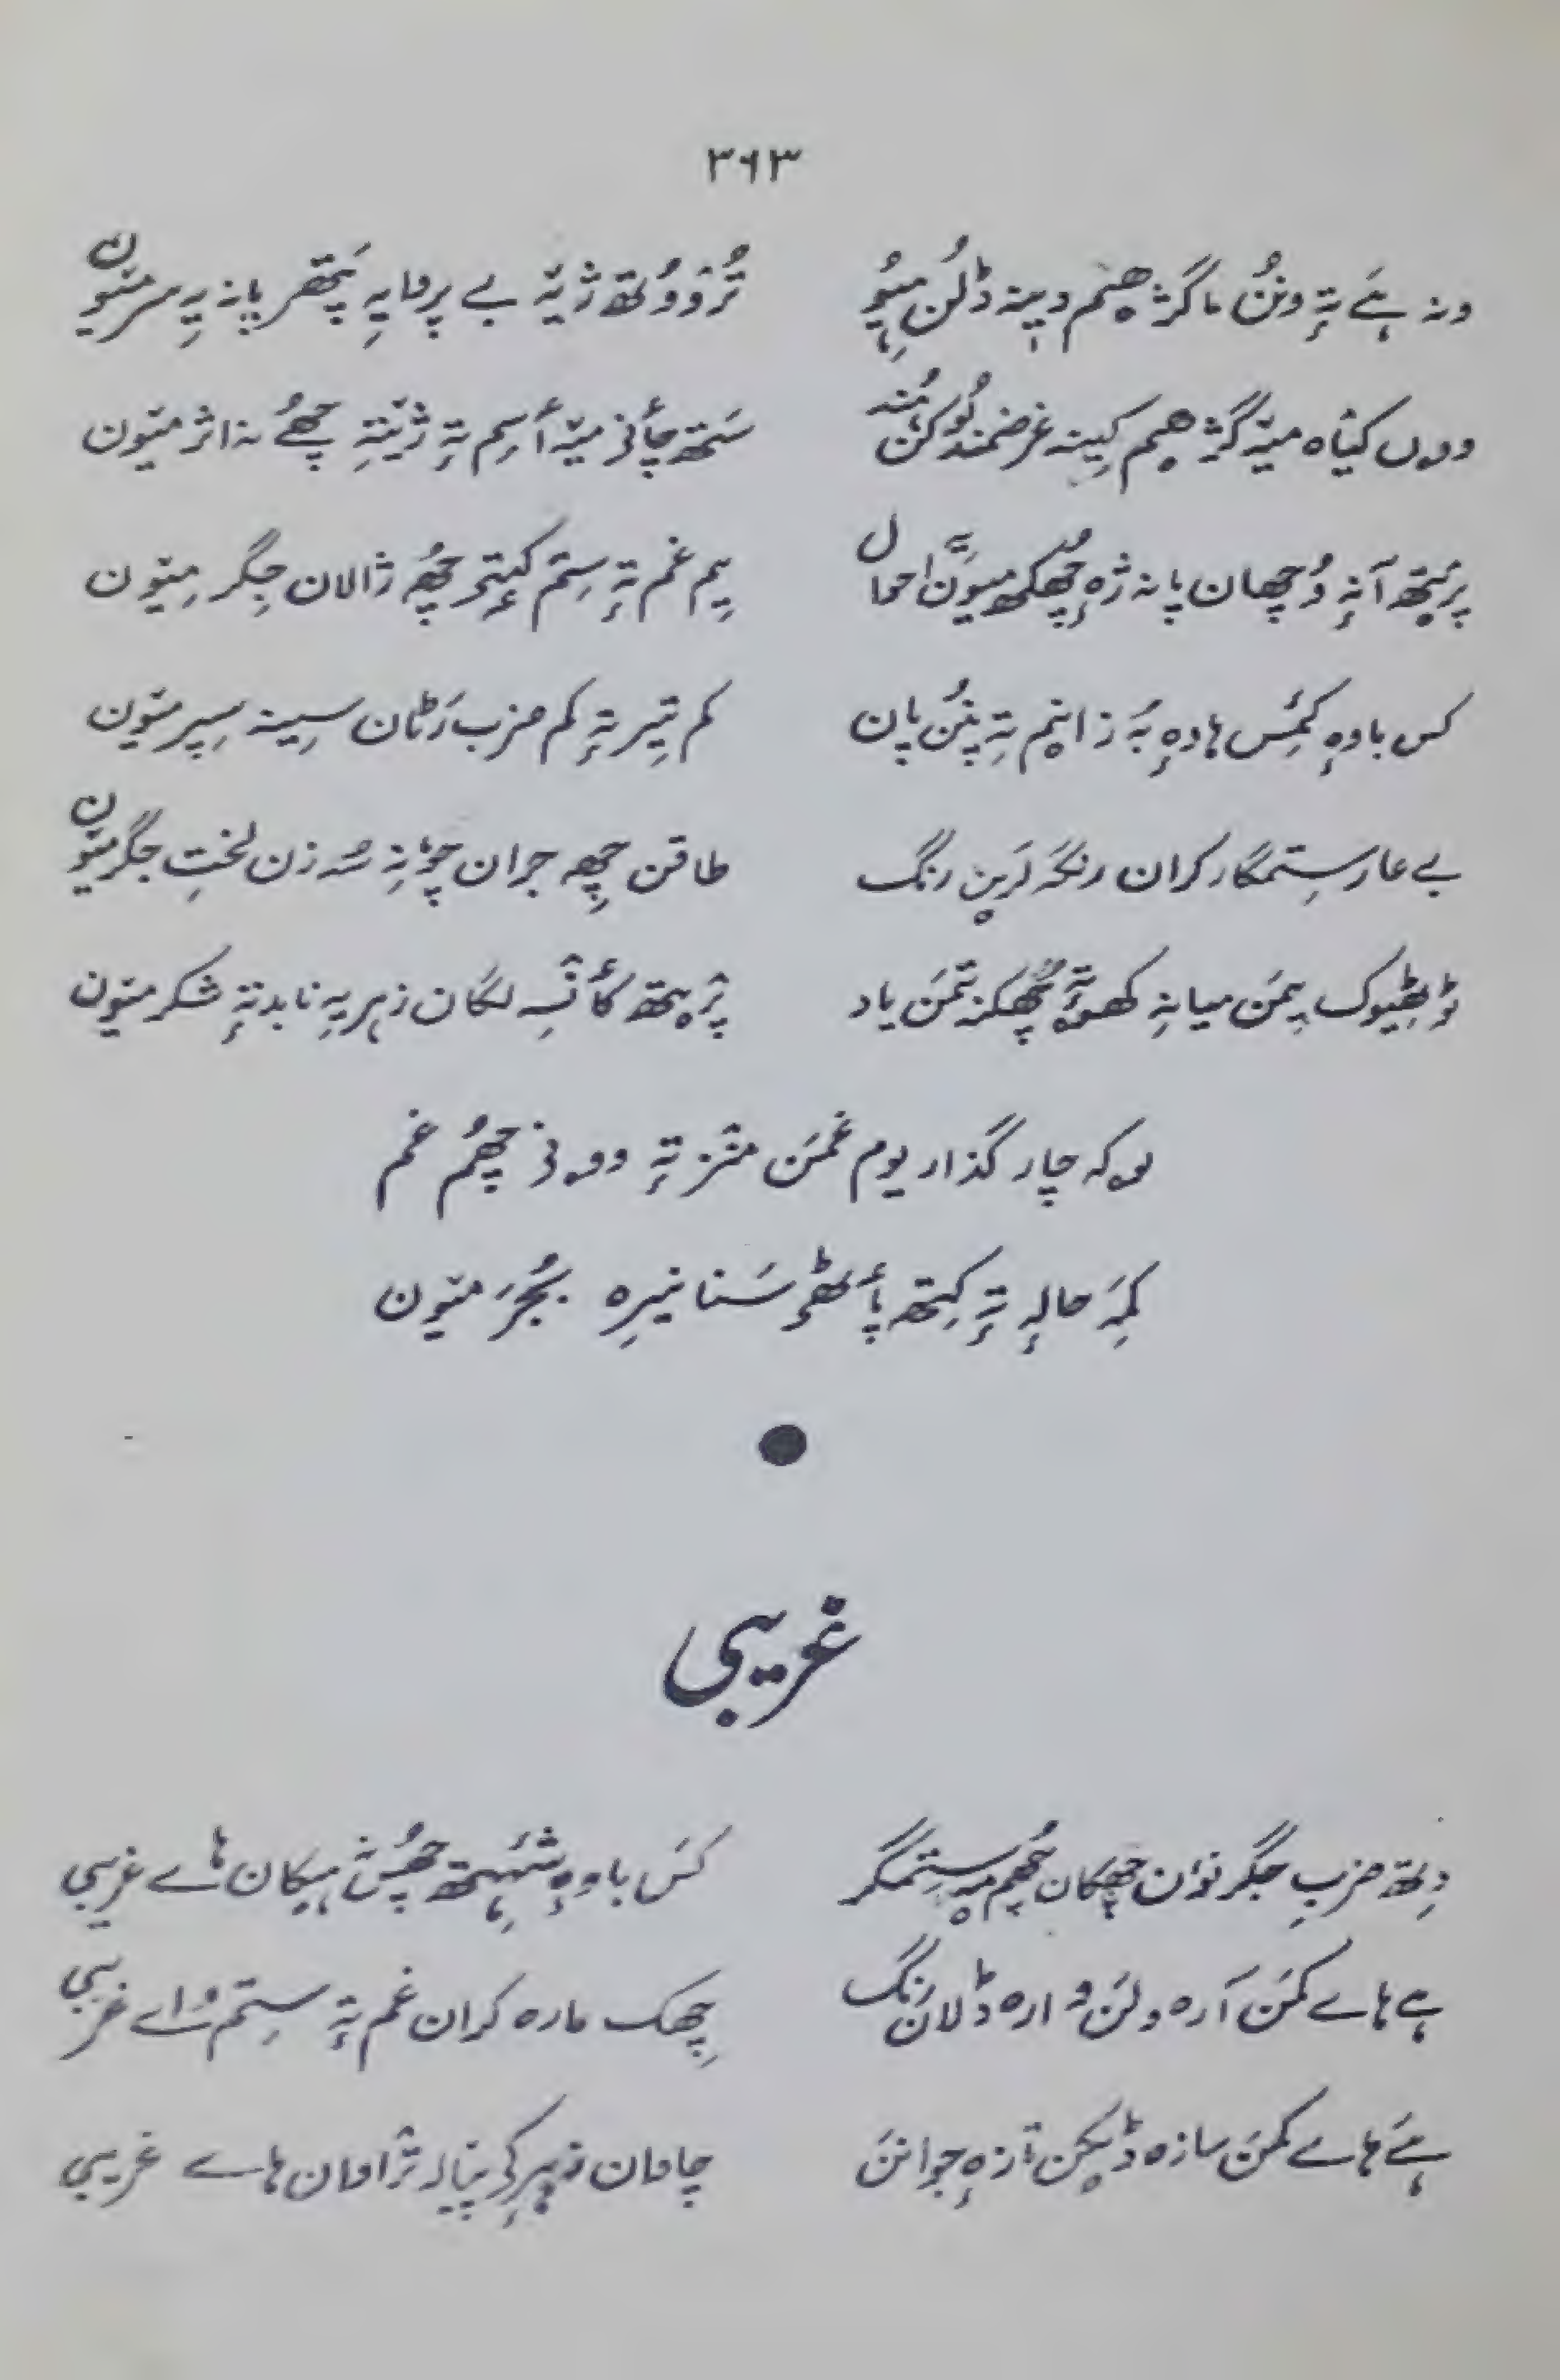 ۳۶۳
ونہ ہے تہٕ ونُن ما گژھیم دپنہ ڈلُن ہیوٗ تُرووُتھ ژیہٕ بے پروایہِ پتھر پانہ یہِ سر میون
ووں کیاہ میہٕ گژھیم کینہ غرضمند لوکن ہُند سَتھ چأنۍ میہٕ أسِم تہٕ ژیتہِ چھےٚ نہ اثر میون
پرٕتھ آنہٕ وُچھان پانہ ژہٕ چھُکھ میون احوال یِم غم تہٕ ستم کیتۍ چھُ ژالان جِگر میون
کس باوہٕ کمِس ہاوہٕ بہٕ زانیم تہِ پنُن پان کم تیر تہٕ کم ضرب رَٹان سینہ سپر میون
بے عار ستمگار کران رنگہ لَرین رنگ طاقن چھِ جران چوٚنہِ زن لختِ جگر میون
ڈیٛٹھیوک یِمَن میانہِ کھوتہٕ چھکنہ تِمَن یاد پرٛیتھ کأنسہِ لگان زہر یہِ نابد تہٕ شکر میون
لوکہ چار گذاریوم غمَن منٛز تہٕ وونۍ چھُم غم
کمِہ حالہٕ تہٕ کِتھ پأٹھۍ سَنا نیرِہ بُجَر میون
غریبی
دِتھ ضربِ جگر نوان چھکان چھُم یہِ ستمگر کَس باوہٕ شہتھ چھُس نہٕ ہیکان ہاے غریبی
ہے ہاے کمَن آرہ ولَن وارہ ڈلان رنگ چھِک مارہ کران غم تہٕ ستم ہاے غریبی
ہَے ہاے کمَن سازہ ڈیکن تازہٕ جوانن چاوان زہرکۍ پیالہ ژاوان ہاے غریبی